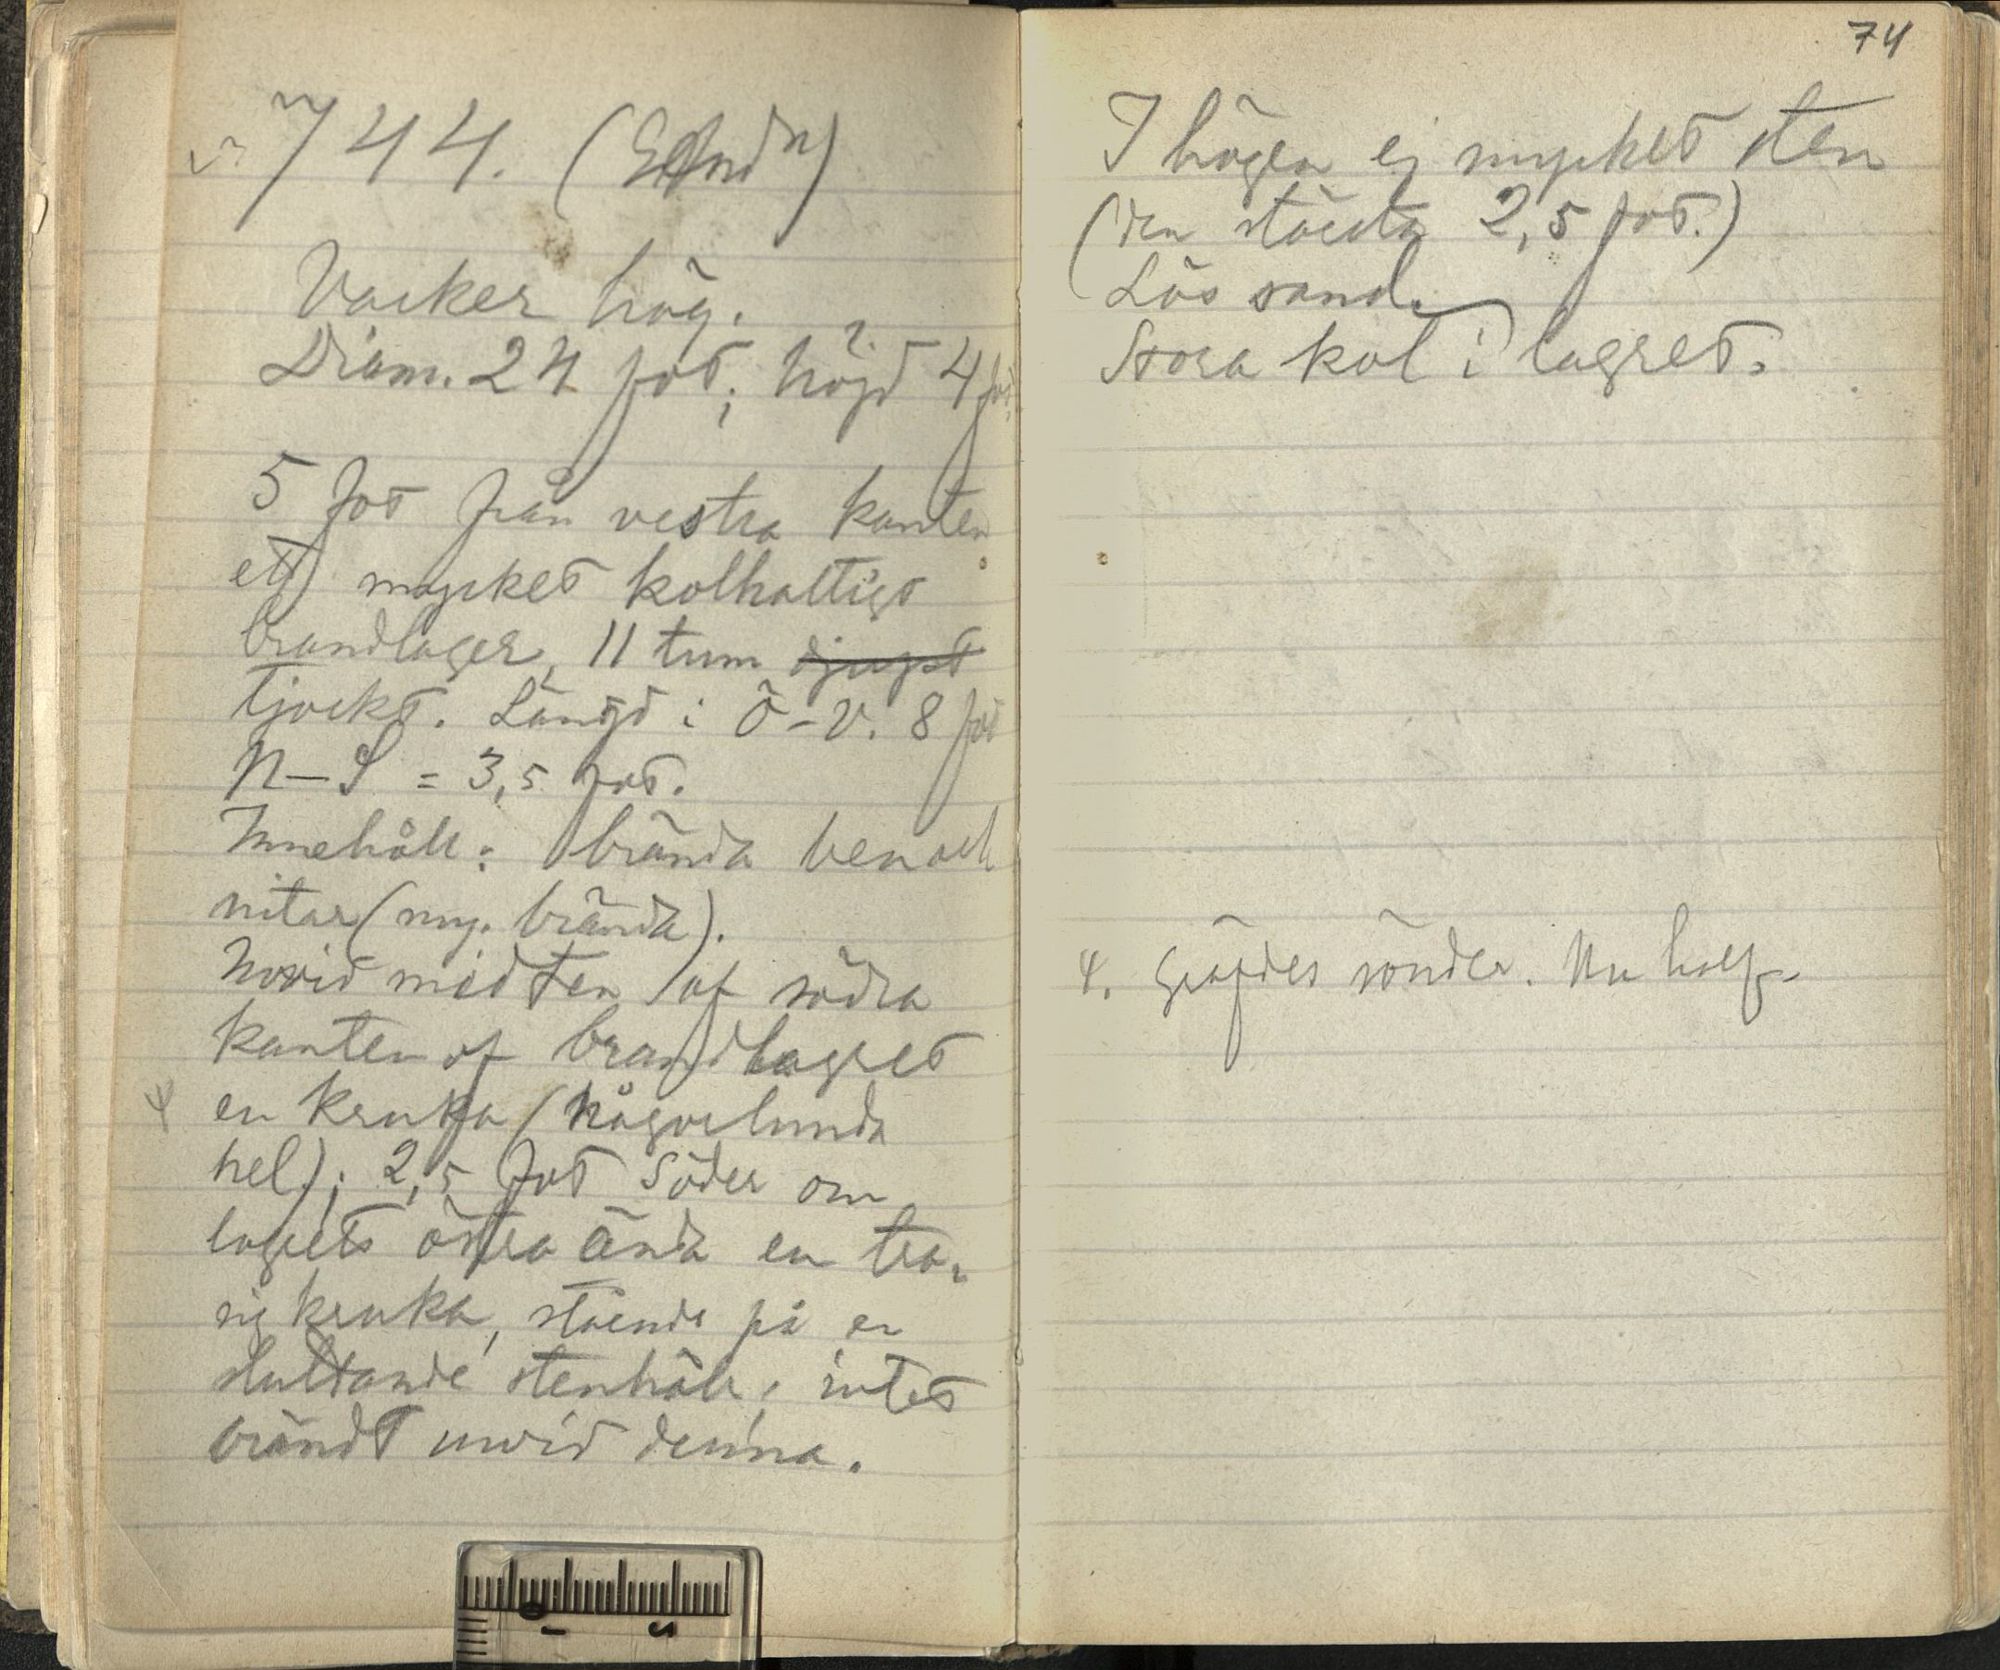 744.
Vacker hög.
Diam. 24 fot; höjd 4 fot.
5 fot från vestra kanten
ett mycket kolhaltigt
brandlager, 11 tum djupt
tjockt. Längd i Ö-V. 8 fot
N-S = 3,5 fot.
Innehåll: brända ben och
nitar (my. brända).
Invid midten af södra
kanten af brandlagret
4 en kruka (någorlunda
hel); 2,5 fot söder om
lagrets östra ända en tra-
sig kruka, stående på en
sluttande stenhäll; intet
brändt invid denna.
74
I högen ej mycket sten
(den största 2,5 fot.)
Lös sand.
Stora kol i lagret.
4. Gräfdes sönder. Nu half.